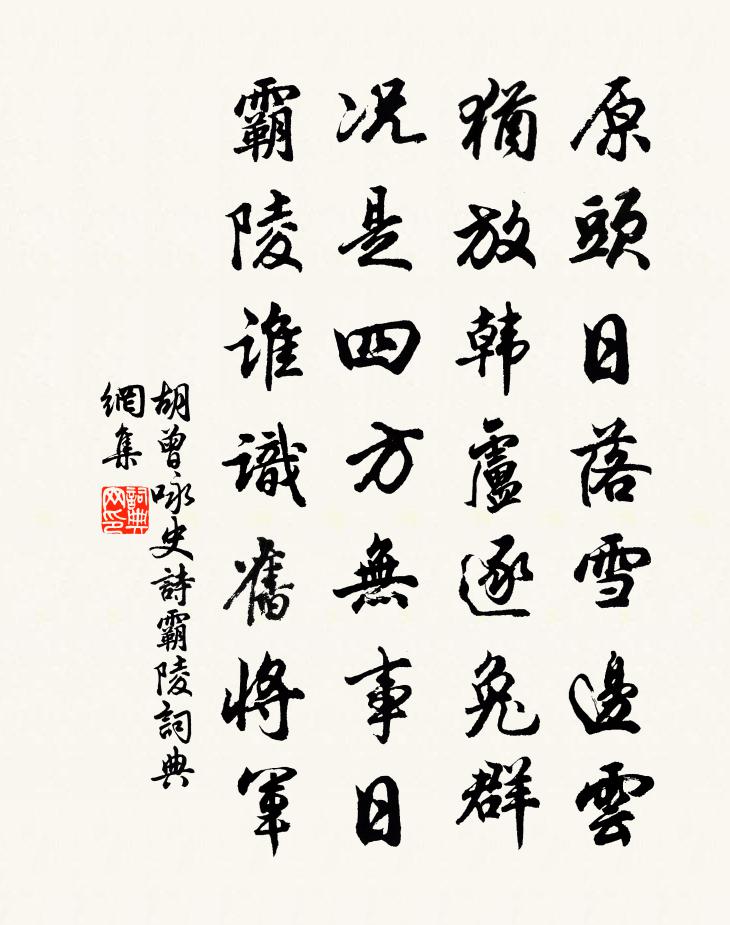 原頭日落雪邊雲
猶放韩盧逐兔群
况是四方無事日
霸陵誰識舊將軍
胡曾咏史詩霸陵詞典
網集
詞典網印